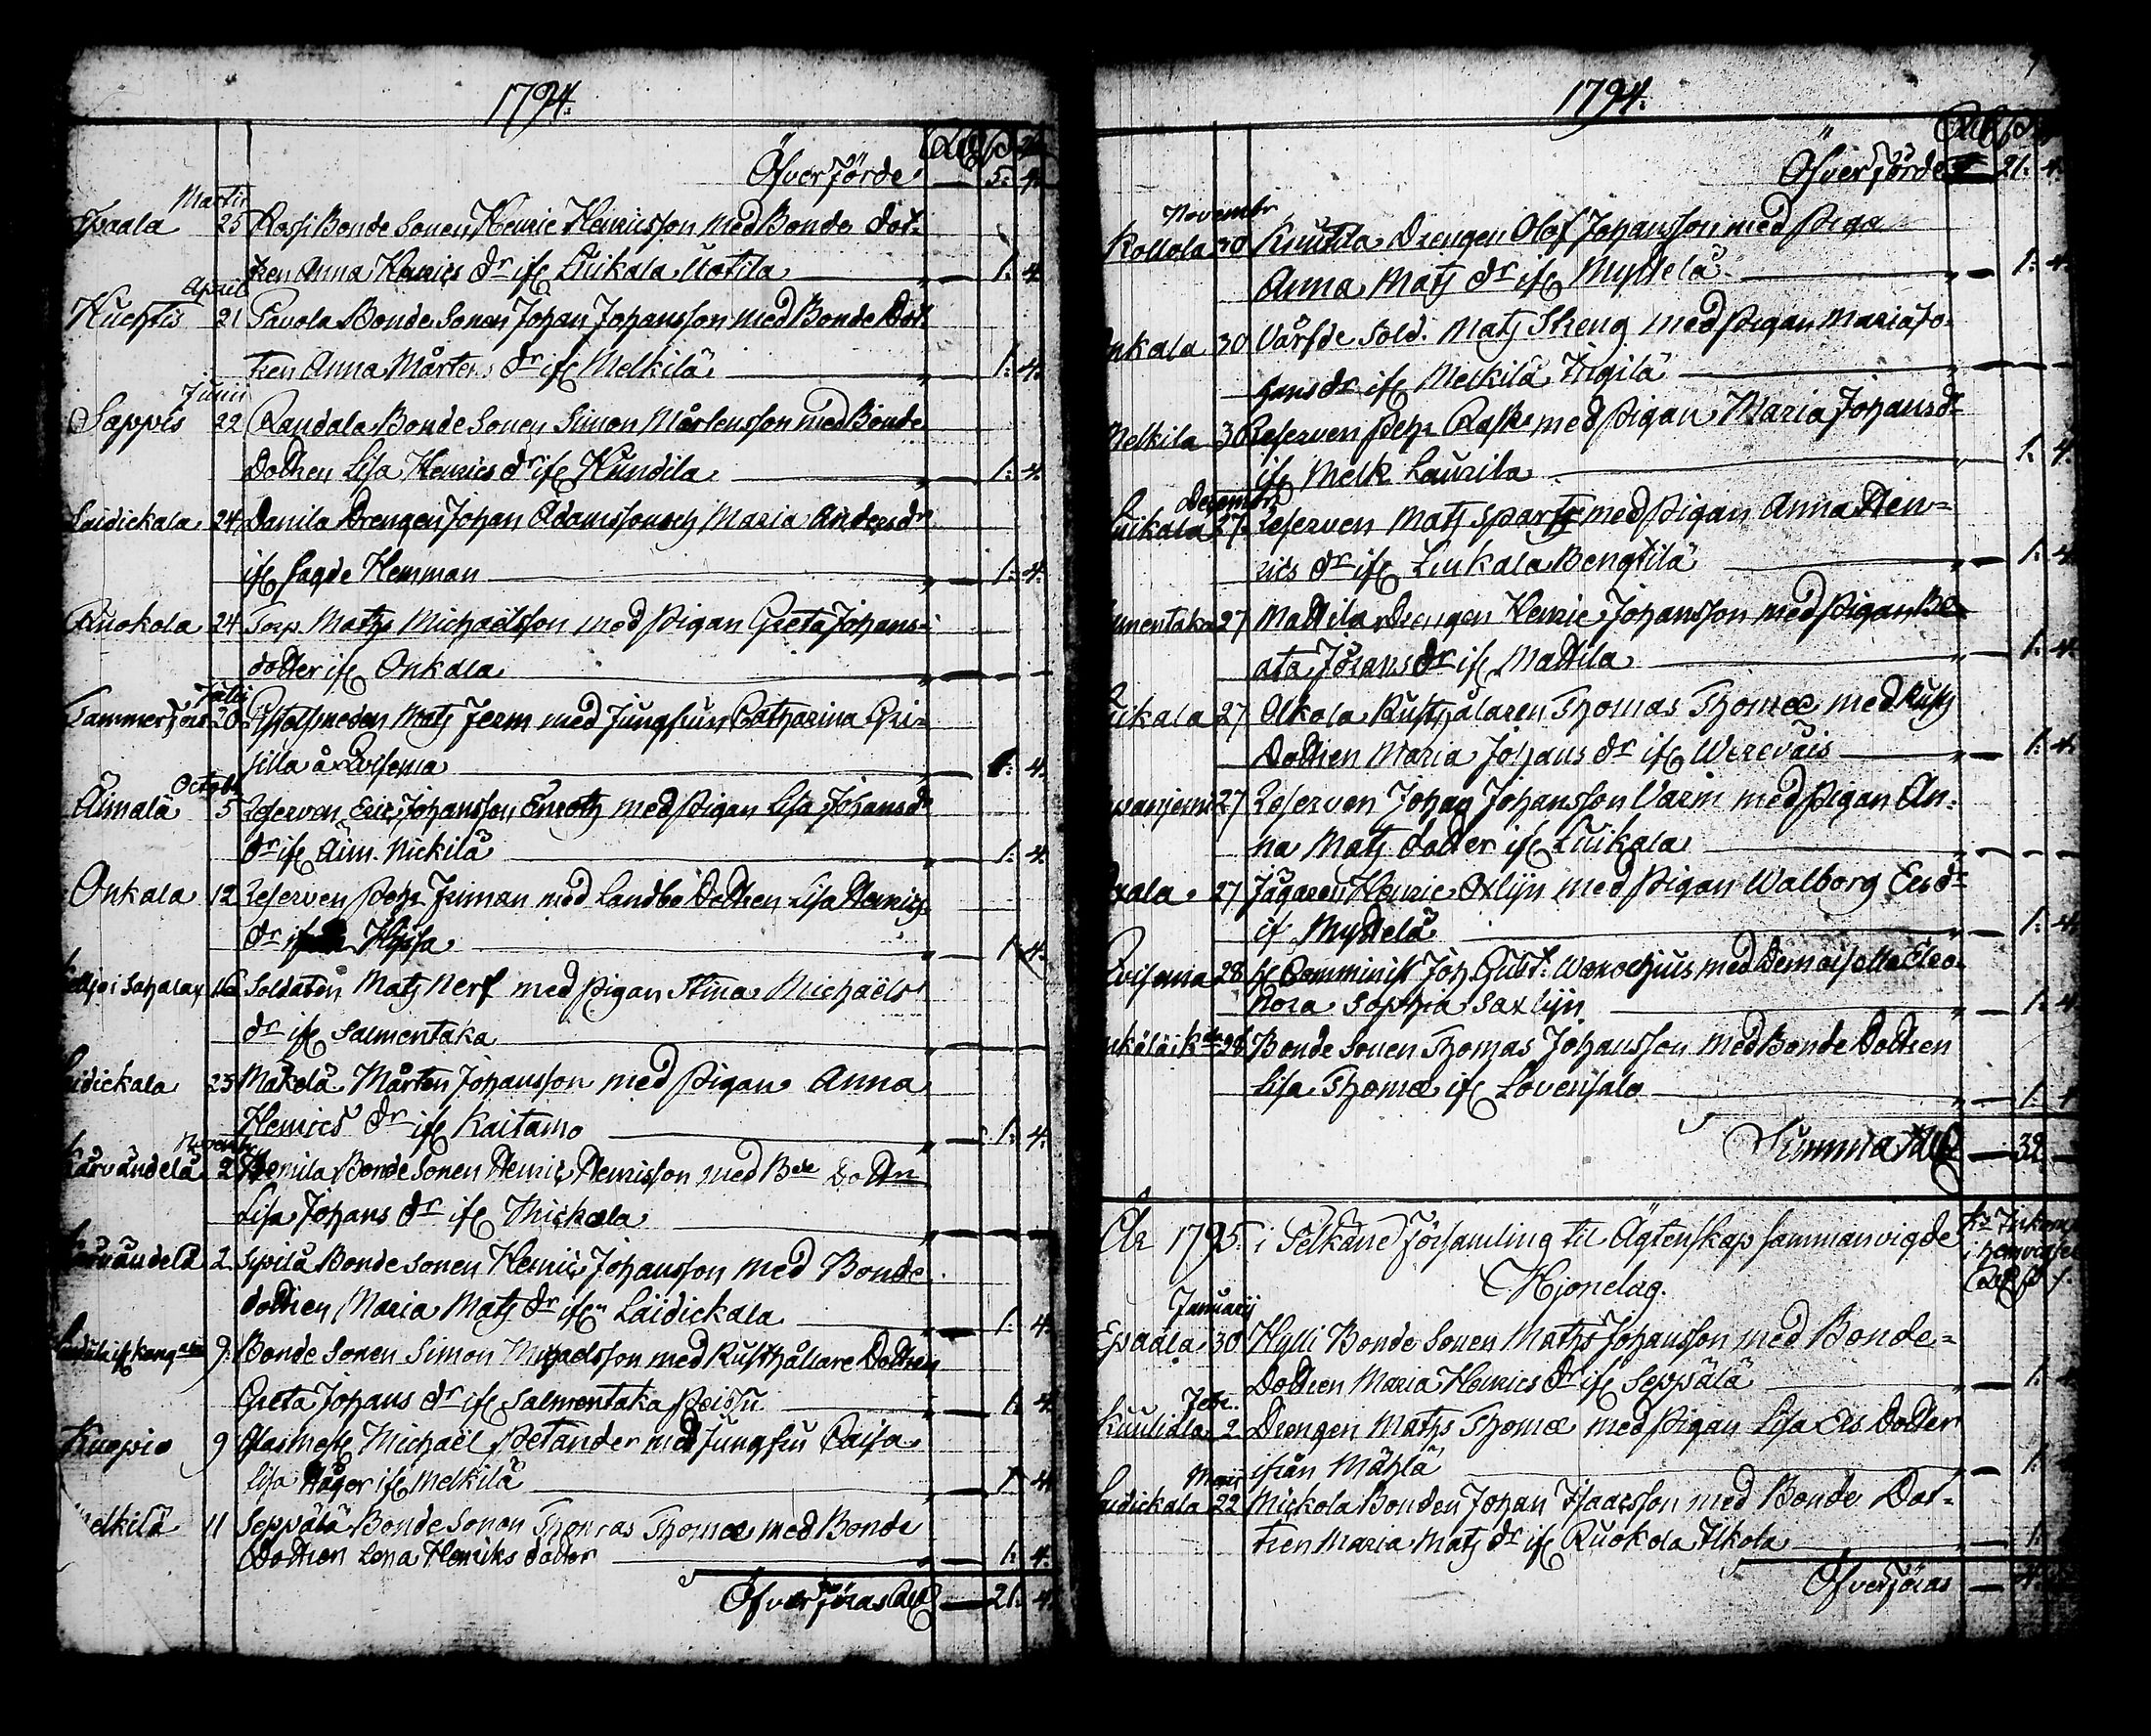 1794.
Öfverförde — 5. 4.
Martii
Epaala 25 Rossi Bonde Sonen Henric Henricsson med Bonde Dot-
tren Anna Henrics dr ifr Luikala Uotila — 1. 4.
April
Huchtis 21 Pavola Bonde Sonen Johan Johansson med Bonde Dot-
tren Anna Mårtens dr ifr Melkilä — 1. 4.
Junii
Sappis 22 Randala Bonde Sonen Simon Mårtensson med Bonde
Dottren Lisa Henrics dr ifr Kundila — 1. 4.
Laidickala 24 Danila Drengen Johan Adamsson och Maria Anders dr
ifr sagde Hemman — 1. 4.
Ruokola 24 Torp. Mathz Michaëlsson med Pigan Greta Johans-
dotter ifr Onkala — — —
Julii
Tammerfors 20 Matz Jerm med Jungfrun Catharina
å Qvisema — 1. 4.
Octobr
Äimälä 5 Reserven Eric Johansson Enrotz med Pigan Lisa Johansd
dr ifr Äim. Nickilä — 1. 4.
Onkala 12 Reserven Pehr Friman med Landbo Dottren Lisa Henrics
dr — 1. 4.
i Sahalax 16 Soldaten Matz Nerf med Pigan Stina Michaëls
dr ifr Salmentaka — — —
Laidickala 23 Mäkelä Mårten Johansson med Pigan Anna
Henrics dr ifr Kaitamo — 1. 4.
Novembr
2 Bonde Sonen Henric Henricsson med Bde Dottn
Lisa Johans dr ifr Mickola — — —
2 Sipilä Bonde Sonen Henric Johansson med Bonde
dottren Maria Matz dr ifrn Laidickala — 1. 4.
9. Bonde Sonen Simon Michaelsson med Rusthållare Dottren
Greta Johans dr ifr Salmentaka — 1. 4.
Kuopio 9 Glasmest. Michaël Petander med Jungfru Caisa
Lisa Häger ifr Melkilä — 1. 4.
Melkilä 11 Seppälä Bonde Sonen Thomas Thomæ med Bonde
Dottren Lena Henriks dotter — 1. 4.
Öfverföras — 21. 4.
1794.
Öfverförde 21. 4.
Novembr
Kollola 30 Knutila Drengen Olof Johansson med Piga
Anna Matz dr ifr Myttelä — 1. 4.
Onkala 30 Värfde Sold. Matz Skeng med Pigan Maria Jo-
hans dr ifr Melkilä — — —
Melkilä 30 Reserven Pehr Rask med Pigan Maria Johansdr
ifr Melk. Laurila — 1. 4.
Decembr
Luikala 27. Reserven Matz Spartz med Pigan Anna Hen-
rics dr ifr Luikala Bengtilä — 1. 4.
Salmentaka 27 Mattila Drengen Henric Johansson med Pigan Be-
ata Jörans dr ifr Mattila — 1. 4.
Luikala 27 Olkola Rusthålaren Thomas Thomæ med Rusth
Dottren Maria Johans dr ifr — 1. 4.
27 Reserven Johan Johansson Varm med Pigan An-
na Matz dotter ifr Luikala — — —
27 Jägaren Henric Oxlijn med Pigan Walborg Ers dr
if Myttelä — 1. 4.
Qvisema 28 Hr Comminist. Joh. Gust. med Demoiselle Eleo-
nora Sophia Saxlijn — 1. 4
28 Bonde Sonen Thomas Johansson med Bonde Dottren
Lisa Thomæ ifr Lovensalo — 1. 4
Summa — 32 —
År 1795. i Pelkäne Församling til Ägtenskap sammanvigde
Hjonelag.
Januarij
Epaala 30 Hylli Bonde Sonen Maths Johansson med Bonde-
Dottren Maria Henrics dr ifr Seppälä — 1.
Febr.
Kuulialla 2 Drengen Maths Thomæ med Pigan Lisa Ers Dotter
ifrån Mähla — 1.
Maij
Laidickala 22 Mickola Bonden Johan Isaacsson med Bonde Dot-
tren Maria Matz dr ifr Ruokola — 1.
Öfverföras — 4.